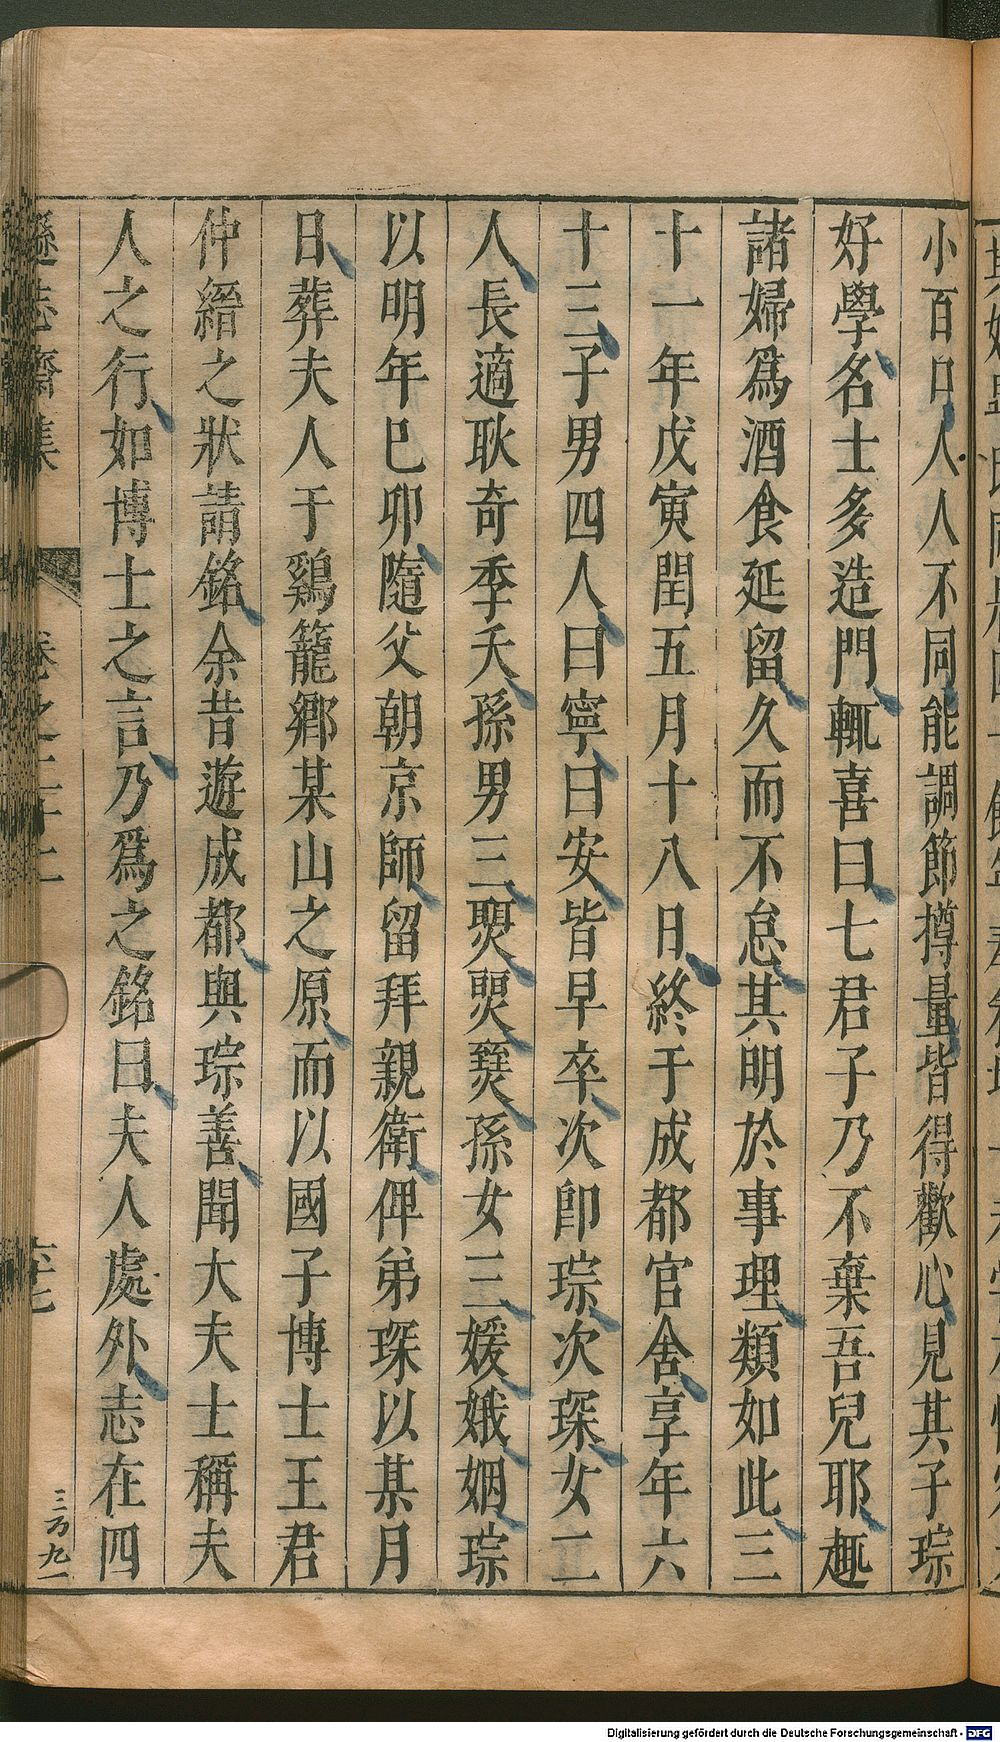 小百口人人不同能調節撙量皆得歡心見其子琮
好學名士多造門輒喜曰七君子乃不棄吾兒耶趣
諸婦爲酒食延留久而不怠其明於事理類如此三
十一年戊寅閏五月十八日終于成都官舍享年六
十三子男四人曰寧曰安皆早卒次卽琮次琛女二
人長適耿奇季夭孫男三孫女三媛娥姻琮
以明年已卯隨父朝京師留拜親衛俾弟琛以某月
日葬夫人于鷄籠鄉某山之原而以國子博士王君
仲縉之狀請銘余昔遊成都與琮善聞大夫士稱夫
人之行如博士之言乃爲之銘曰夫人處外志在四
遜志齋集 卷之二十二 六七
三万九一
Digitalisierung gefördert durch die Deutsche Forschungsgemeinschaft - DFG